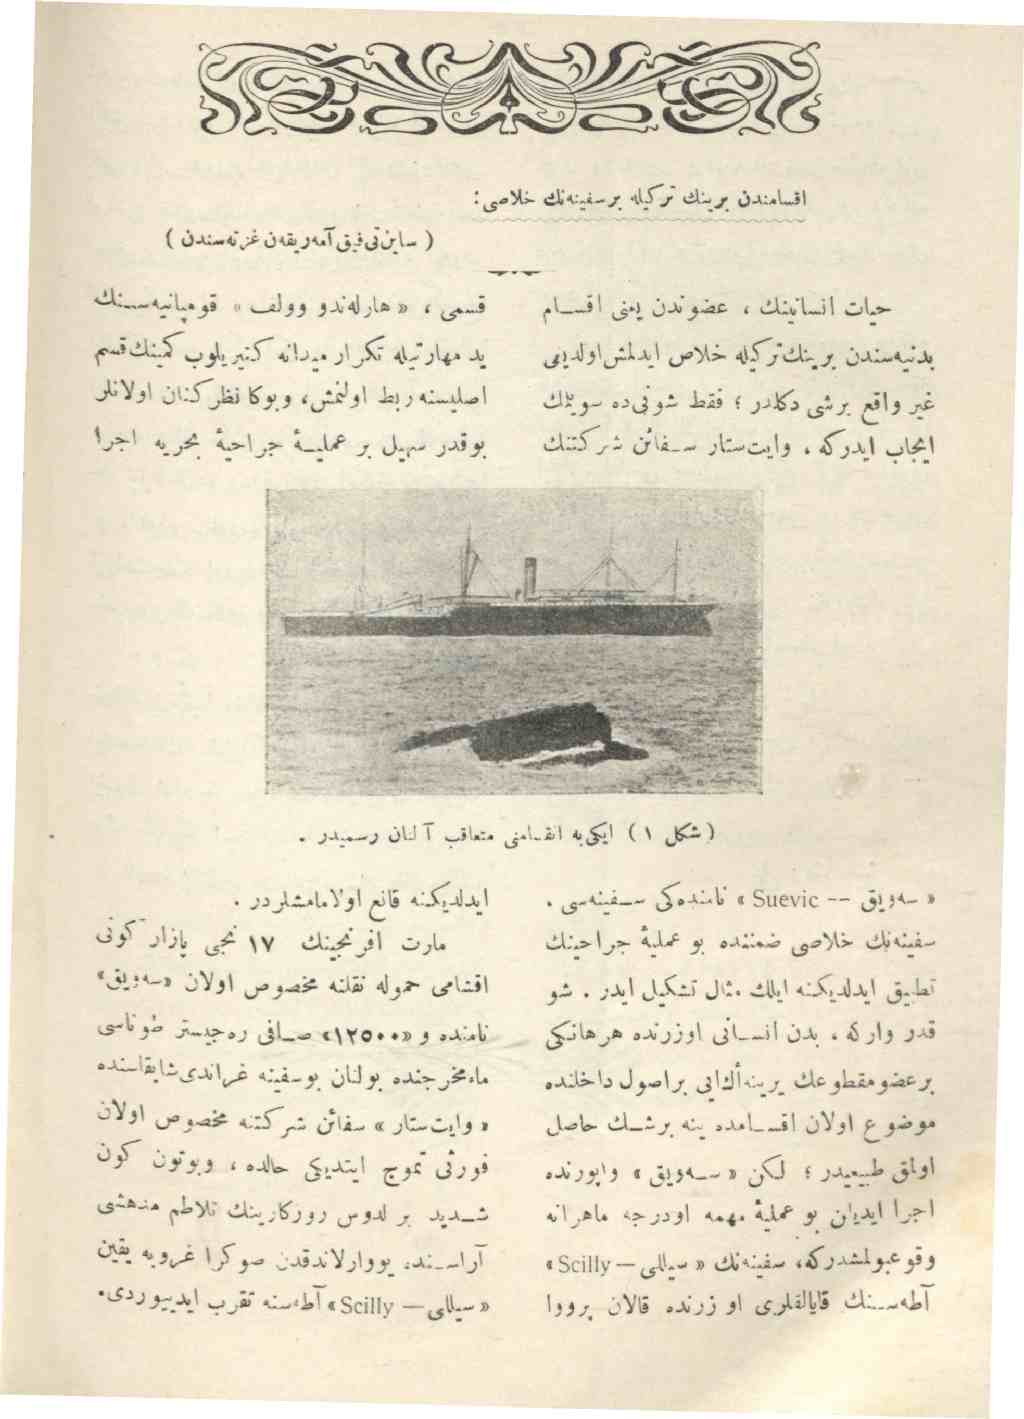 اقسامندن برینك تركیله برسفینه‌نك خلاصی :
( ساینتی‌فیق آمه‌ریقه‌ن غزته‌سندن )
حیات انسانیتك ، عضوندن یعنی اقسـام
بدنیه‌سندن برینك‌تركیله خلاص ایدلمش‌اولدیغی
غیر واقع برشی دكلدر ؛ فقط شونی‌ده سویلمك
ایجاب ایدركه ، وایت‌ستار سـفائن شركتنك
قسمی ، « هارله‌ندو وولف » قومپانیه‌سـنك
ید مهارتیله تكرار میدانه كتیریلوب كمینك‌قسم
اصلیسنه ربط اولنمش، وبوكا نظركنان اولانلر
بوقدر سهیل بر عملیـۀ جراحیۀ بحریه اجرا
( شكل ١ ) ایكی‌یه انقـسامنی متعاقب آلنان رسمیدر .
« سه‌ویق -- Suevic » نامنده‌كی سـفینه‌سی .
سفینه‌نك خلاصی ضمننده بو عملیۀ جراحینك
تطبیق ایدلدیكنه ایلك مثال تشكیل ایدر . شو
قدر واركه ، بدن انسـانی اوزرنده هرهانكی
برعضومقطوعك یرینه‌أك‌ایی براصول داخلنده
موضوع اولان اقسـامده ینه برشـك حاصل
اولمق طبیعیدر ؛ لكن « سـه‌ویق » واپورنده
اجرا ایدیلن بو عملیۀ مهمه اودرجه ماهرانه
وقوعبولمشدركه، سفینه‌نك « سیللی — Scilly »
آطه‌سـنك قایالقلری اوزرنده قالان پرووا
ایدلدیكنه قانع اولامامشلردر .
مارت افرنجینك ١٧ نجی پازار كونی
اقشامی حموله نقلنه مخصوص اولان «سه‌ویق»
نامنده و «١٢٥٠٠» صـافی ره‌جیستر طوناسی
ماءمخرجنده بولنان بوسفینه غراندی‌شایقاسنده
« وایت‌ستار » سفائن شركتنه مخصوص اولان
فورثی تموج ایتدیكی حالده ، وبوتون كون
شـدید بر لدوس روزكارینك تلاطم مدهشی
آراسـنده یووارلاندقدن صوكرا غروبه یقین
« سیللی — Scilly » آطه‌سنه تقرب ایدییوردی.